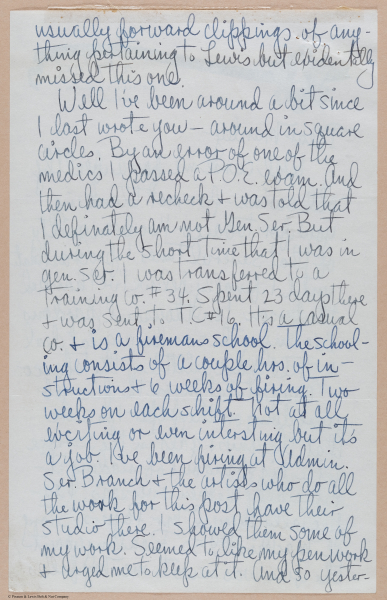 usually forward clippings of any-
thing pertaining to Lewis but evidentally
missed this one.
Well I've been around a bit since
I last wrote you – around in square
circles. By an error of one of the
medics I passed a P.O.E. exam. And
then had a recheck & was told that
I definately am not Gen. Ser. But
during the short time that I was in
gen. ser. I was transferred to a
training co. #34. Spent 23 days there
& was sent to T.C #16. It's a casual
co. & is a firemans school. The school-
ing consists of a couple hrs. of in-
structions & 6 weeks of firing. Two
weeks on each shift. Not at all
exciting or even intersting but its
a job. I've been firing at Admin.
Ser. Branch & the artists who do all
the work for this post have their
studio there. I showed them some of
my work. Seemed to like my pen work
& urged me to keep at it. And so yester-